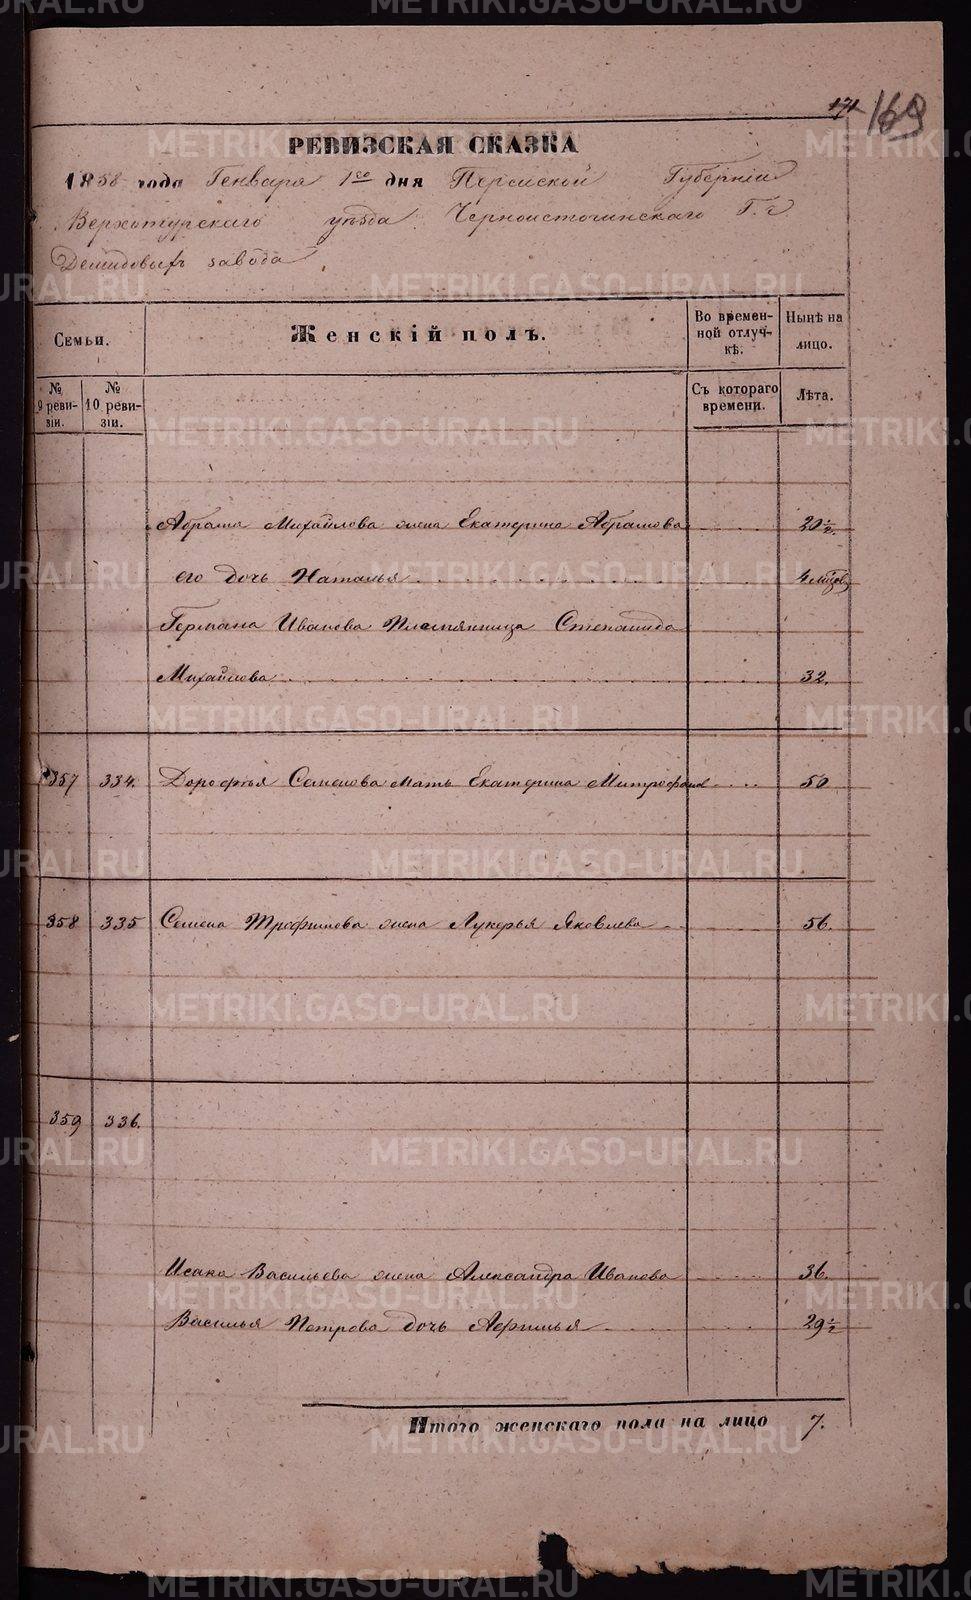 171 169
РЕВИЗСКАЯ СКАЗКА
1858 года Генваря 1го дня Пермской Губерніи
Верхотурскаго уѣзда Черноисточинскаго Г.г
Демидовыхъ завода
Семьи.
Женскій полъ.
Во времен-
ной отлуч-
кѣ.
Нынѣ на
лицо.
№
9 реви-
зіи.
№
10 реви-
зіи.
Съ котораго
времени.
Лѣта.
Абрама Михайлова жена Екатерина Абрамова 20½.
его дочь Наталья 4 мѣсяц
Германа Иванова племянница Степанида
Михайлова 32.
357 334. Дорофѣя Семенова мать Екатерина Митрофанов 50
358 335 Семена Трофимова жена Лукерья Яковлева 56.
359 336.
Исака Васильева жена Александра Иванова 36.
Василья Петрова дочь Афимья 29½
Итого женскаго пола на лицо 7.
METRIKI.GASO-URAL.RU